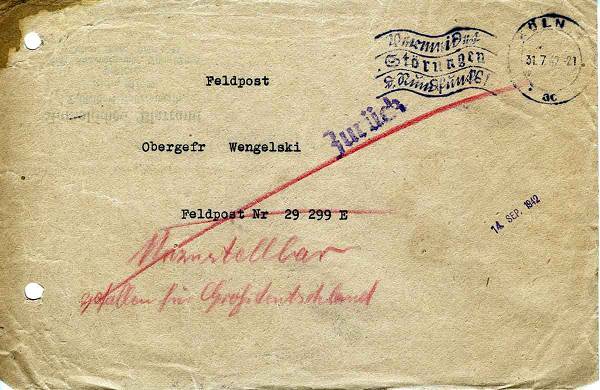 Vermeidet
Störungen
d. Rundfunks!
KÖLN
31.7.42-21
ac
Feldpost
Zurück
Obergefr Wengelski
Feldpost Nr 29 299 E
14. SEP. 1942
Unzustellbar
gefallen für Großdeutschland